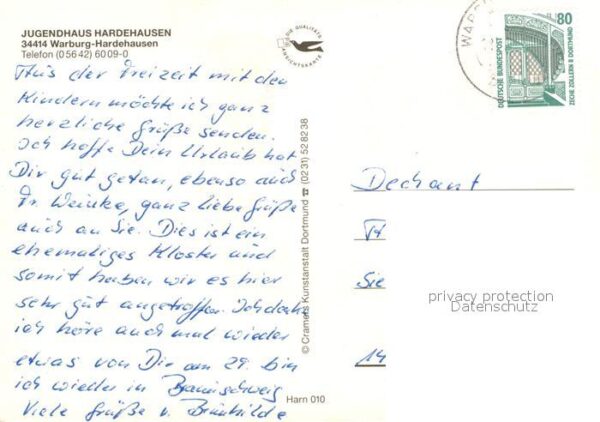 JUGENDHAUS HARDEHAUSEN
34414 Warburg-Hardehausen
Telefon (0 56 42) 60 09-0
Aus der Freizeit mit den
Kindern möchte ich ganz
herzliche Grüße senden.
Ich hoffe Dein Urlaub hat
Dir gut getan, ebenso auch
Fr. Weinke, ganz liebe Grüße
auch an Sie. Dies ist ein
ehemaliges Kloster und
somit haben wir es hier
sehr gut angetroffen. Ich denke
ich höre auch mal wieder
etwas von Dir am 29. bin
ich wieder in Braunschweig
Viele Grüße v. Brünhilde
© Cramers Kunstanstalt Dortmund ☎ (02 31) 52 82 38
Harn 010
DIE QUALITÄTS
ANSICHTSKARTE
WAR
80
DEUTSCHE BUNDESPOST
ZECHE ZOLLERN II DORTMUND
Dechant
Fr
Sie
14
privacy protection
Datenschutz